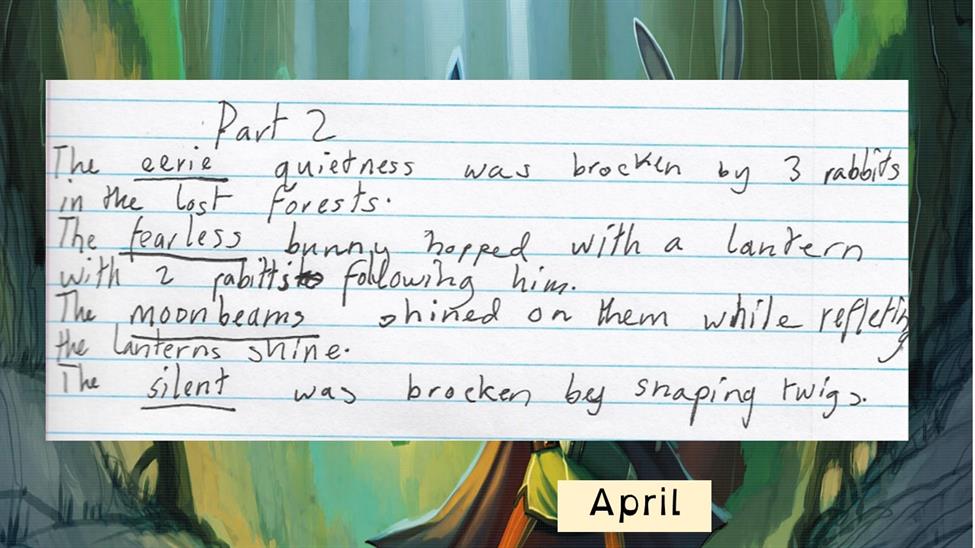 Part 2
The eerie quietness was brocken by 3 rabbits
in the lost forests.
The fearless bunny hopped with a lantern
with 2 rabitts following him.
The moonbeams shined on them while refleting
the lanterns shine.
The silent was brocken by snaping twigs.
April